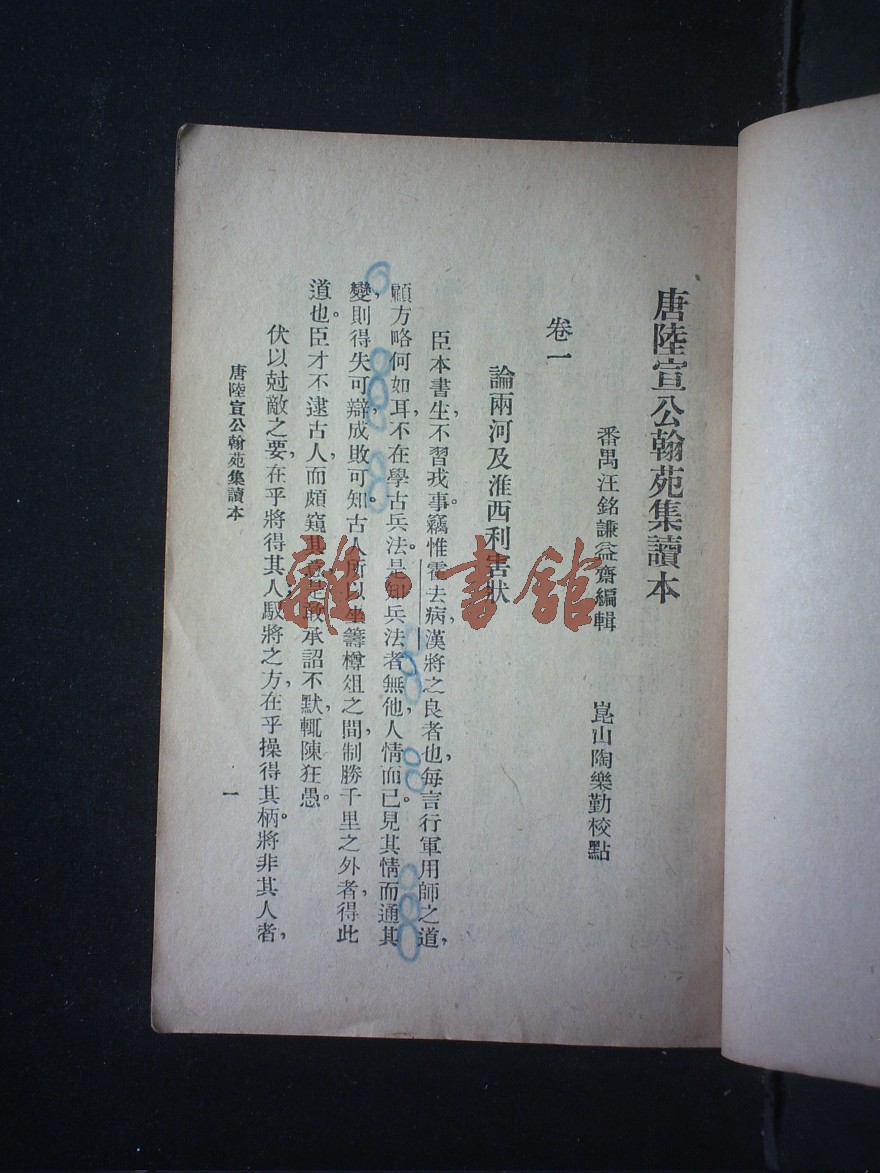 唐陸宣公翰苑集讀本
番禺汪銘謙益齋編輯　崑山陶樂勤校點
卷一
論兩河及淮西利害狀
臣本書生，不習戎事。竊惟霍去病，漢將之良者也，每言行軍用師之道，
顧方略何如耳，不在學古兵法。是知兵法者無他，人情而已。見其情而通其
變，則得失可辯，成敗可知。古人所以坐籌樽俎之間，制勝千里之外者，得此
道也。臣才不逮古人，而頗窺其意。是敢承詔不默，輒陳狂愚。
伏以尅敵之要，在乎將得其人；馭將之方，在乎操得其柄。將非其人者，
唐陸宣公翰苑集讀本
一
雜·書館